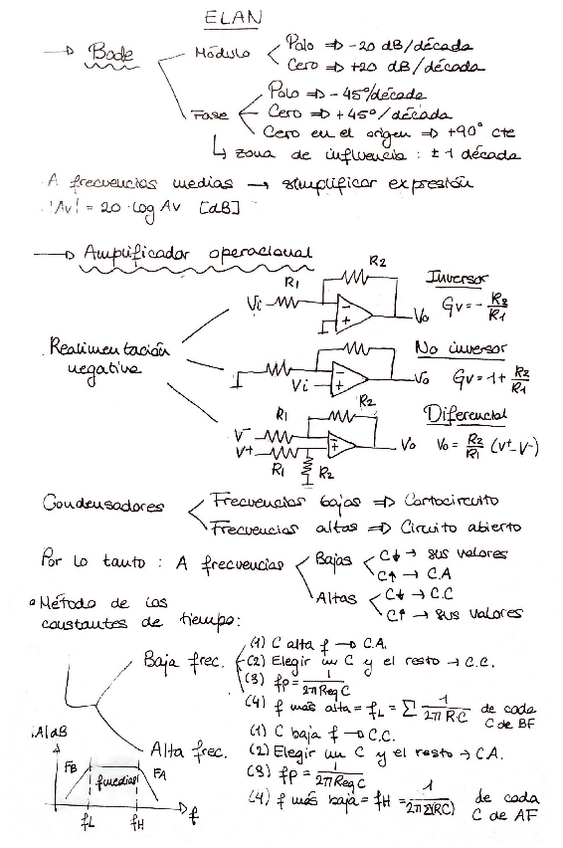 ELAN
→ Bode
Módulo
Polo ⇒ -20 dB/década
Cero ⇒ +20 dB/década
Fase
Polo ⇒ -45º/década
Cero ⇒ +45º/década
Cero en el origen ⇒ +90° cte
↳ zona de influencia : ± 1 década
A frecuencias medias → simplificar expresión
|Av| = 20·log Av [dB]
→ Amplificador operacional
Realimentación
negativa
R1
R2
Vi
-
+
Vo
Inversor
Gv = - R2/R1
Vi
-
+
R2
Vo
No inversor
Gv = 1 + R2/R1
V-
V+
R1
R1
R2
-
+
Vo
Diferencial
Vo = R2/R1 (V+ - V-)
Condensadores
Frecuencias bajas ⇒ Cortocircuito
Frecuencias altas ⇒ Circuito abierto
Por lo tanto : A frecuencias
Bajas
C↓ → sus valores
C↑ → C.A
Altas
C↓ → C.C
C↑ → sus valores
• Método de las
constantes de tiempo:
Baja frec.
(1) C alta f → C.A.
(2) Elegir un C y el resto → C.C.
(3) fp = 1/2π Req C
(4) f más alta = fL = Σ 1/2π RC de cada
C de BF
Alta frec.
(1) C baja f → C.C.
(2) Elegir un C y el resto → C.A.
(3) fp = 1/2π Req C
(4) f más baja = fH = 1/2π Σ(RC) de cada
C de AF
|A|dB
FB
fmedias
FA
fL
fH
f